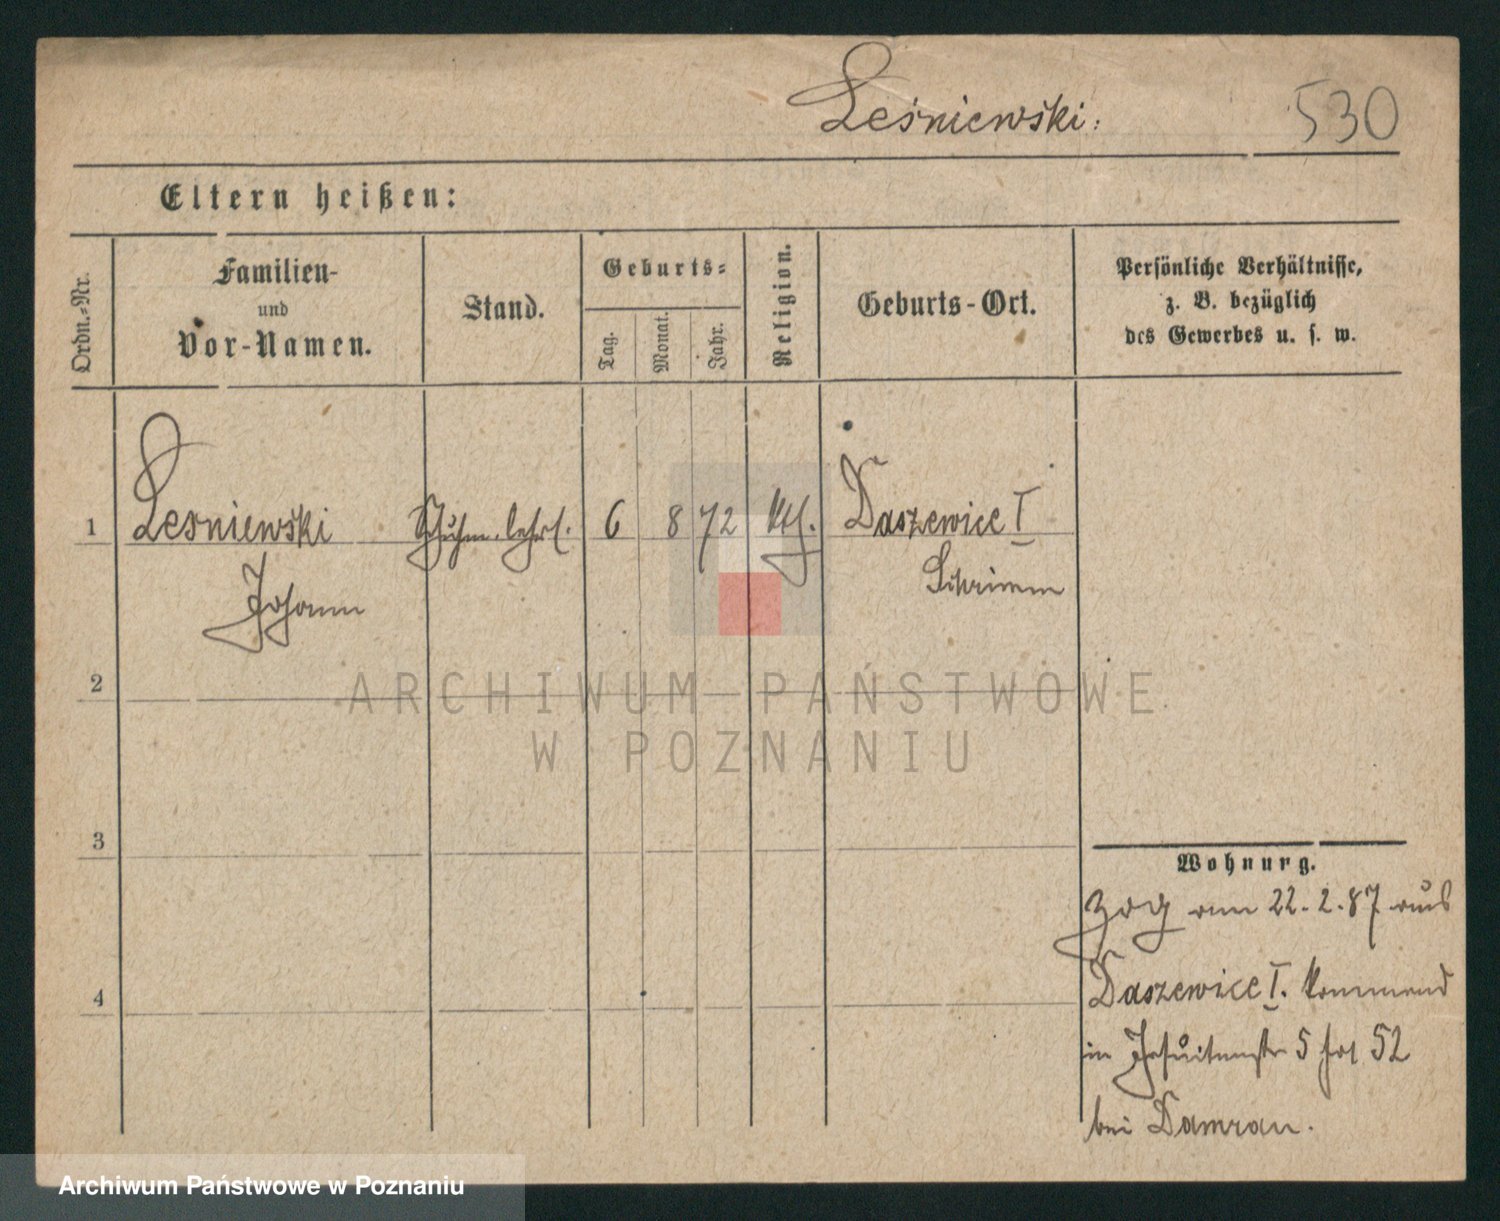 Leśniewski.
530
Eltern heißen:
Ordn.-Nr.
Familien-
und
Vor-Namen.
Stand.
Geburts-
Tag.
Monat.
Jahr.
Religion.
Geburts-Ort.
Persönliche Verhältnisse,
z. B. bezüglich
des Gewerbes u. s. w.
1 Lesniewski Schuhm. lehrl. 6 8 72 kth. Daszewice I
Johann Schrimm
2
3
4
Wohnung.
zog am 22.2.87 aus
Daszewice I. kommend
in Jesuitenstr 5 52
bei Damran.
ARCHIWUM PAŃSTWOWE
W POZNANIU
Archiwum Państwowe w Poznaniu